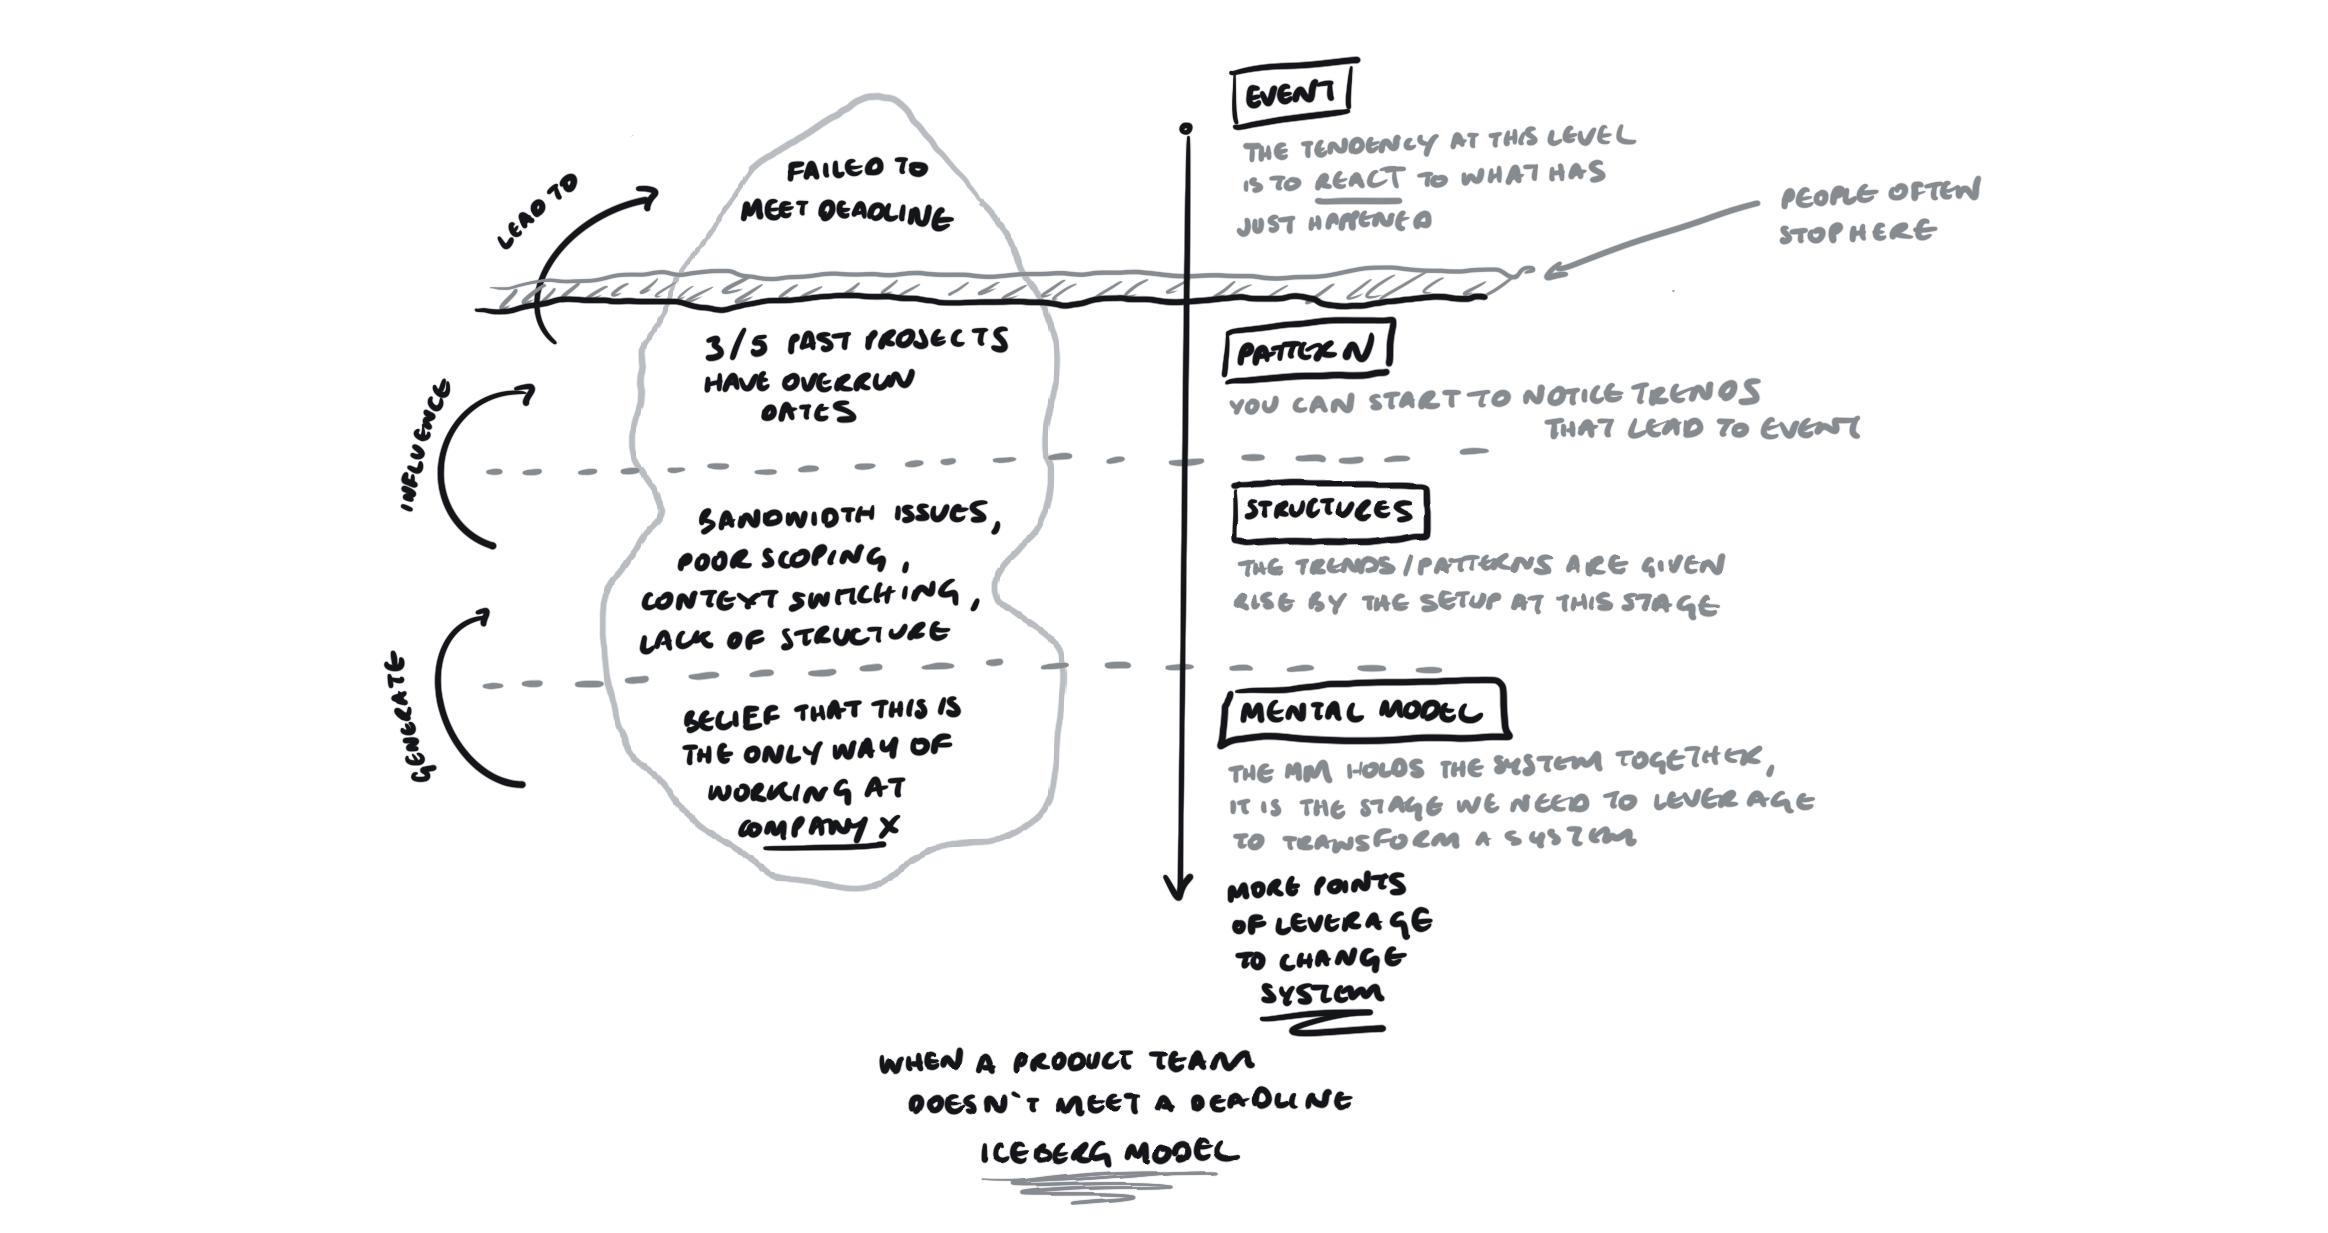 EVENT
THE TENDENCY AT THIS LEVEL
IS TO REACT TO WHAT HAS
JUST HAPPENED
PEOPLE OFTEN
STOP HERE
LEAD TO
FAILED TO
MEET DEADLINE
3/5 PAST PROJECTS
HAVE OVERRUN
DATES
PATTERN
YOU CAN START TO NOTICE TRENDS
THAT LEAD TO EVENT
INFLUENCE
BANDWIDTH ISSUES,
POOR SCOPING,
CONTEXT SWITCHING,
LACK OF STRUCTURE
STRUCTURES
THE TRENDS/PATTERNS ARE GIVEN
RISE BY THE SETUP AT THIS STAGE
GENERATE
BELIEF THAT THIS IS
THE ONLY WAY OF
WORKING AT
COMPANY X
MENTAL MODEL
THE MM HOLDS THE SYSTEM TOGETHER,
IT IS THE STAGE WE NEED TO LEVERAGE
TO TRANSFORM A SYSTEM
MORE POINTS
OF LEVERAGE
TO CHANGE
SYSTEM
WHEN A PRODUCT TEAM
DOESN'T MEET A DEADLINE
ICEBERG MODEL